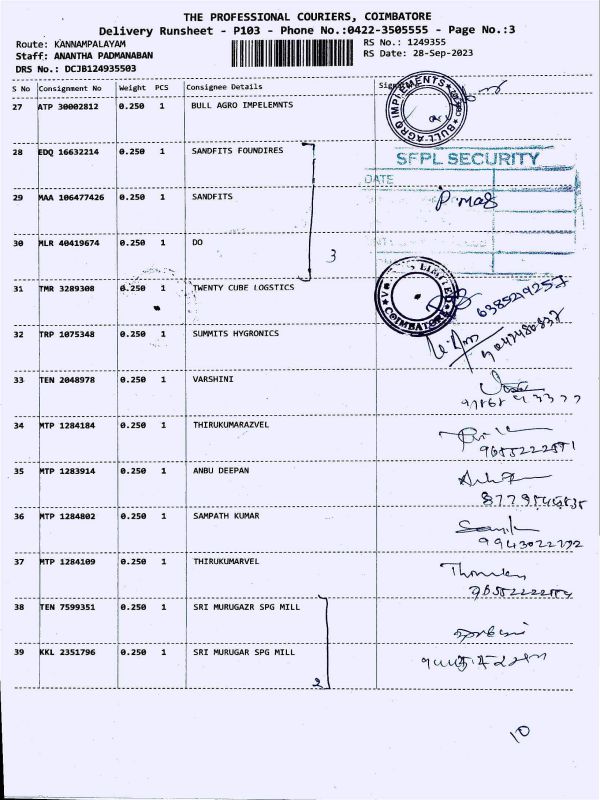 THE PROFESSIONAL COURIERS, COIMBATORE
Delivery Runsheet - P103 - Phone No.:0422-3505555 - Page No.:3
Route: KANNAMPALAYAM RS No.: 1249355
Staff: ANANTHA PADMANABAN RS Date: 28-Sep-2023
DRS No.: DCJB124935503
S No Consignment No Weight PCS Consignee Details
27 ATP 30002812 0.250 1 BULL AGRO IMPELEMNTS
BULL AGRO IMPLEMENTS
28 EDQ 16632214 0.250 1 SANDFITS FOUNDIRES
SFPL SECURITY
DATE
29 MAA 106477426 0.250 1 SANDFITS
30 MLR 40419674 0.250 1 DO
3
31 TMR 3289308 0.250 1 TWENTY CUBE LOGSTICS
LIMITED
COIMBATORE
32 TRP 1075348 0.250 1 SUMMITS HYGRONICS
33 TEN 2048978 0.250 1 VARSHINI
34 MTP 1284184 0.250 1 THIRUKUMARAZVEL
35 MTP 1283914 0.250 1 ANBU DEEPAN
36 MTP 1284802 0.250 1 SAMPATH KUMAR
37 MTP 1284109 0.250 1 THIRUKUMARVEL
38 TEN 7599351 0.250 1 SRI MURUGAZR SPG MILL
39 KKL 2351796 0.250 1 SRI MURUGAR SPG MILL
2
10